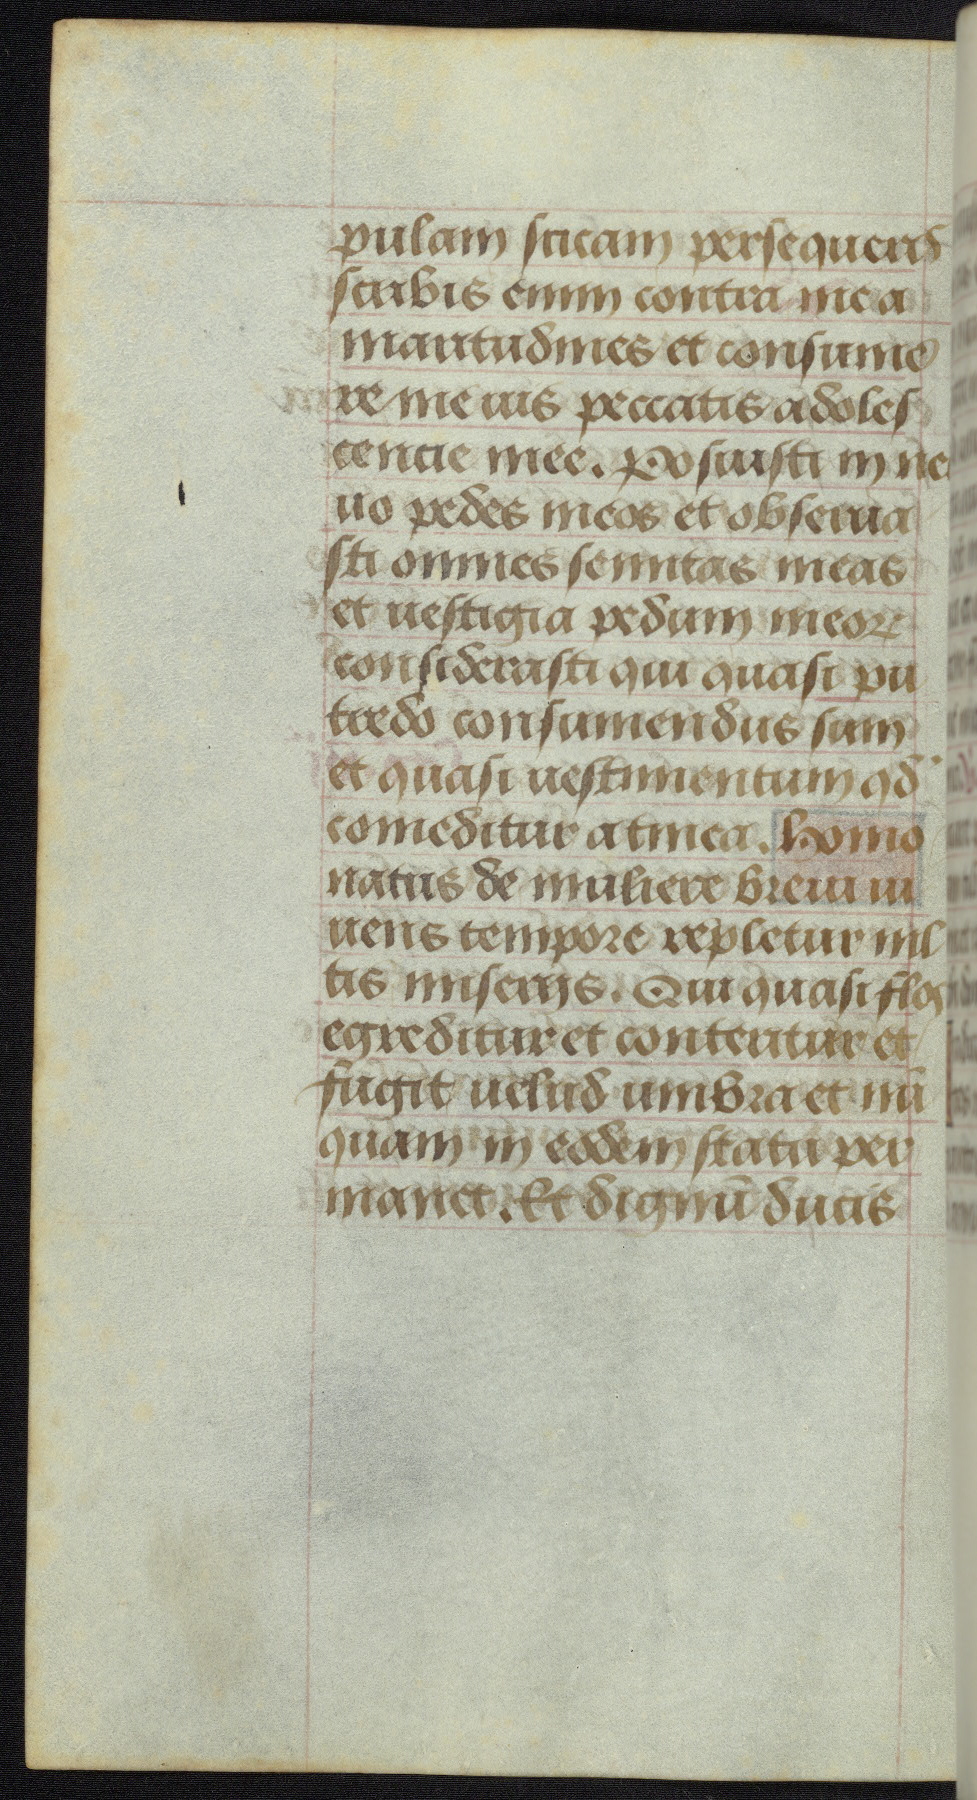 pulam sticam persequeris
scribis enim contra me a
maritudines et consume
re me uis peccatis adoles
cencie mee. Posuisti in ner
uo pedes meos et obserua
sti omnes semitas meas
et uestigia pedum meoꝝ
considerasti qui quasi pu
tredo consumendus sum
et quasi uestimentum qd
comeditur a tinea. Homo
natus de muliere breui ui
uens tempore repletur ml
tis miserijs. Qui quasi flos
egreditur et conteritur et
fugit uelud umbra et nū
quam in eodem statu per
manet. Et dignū ducis